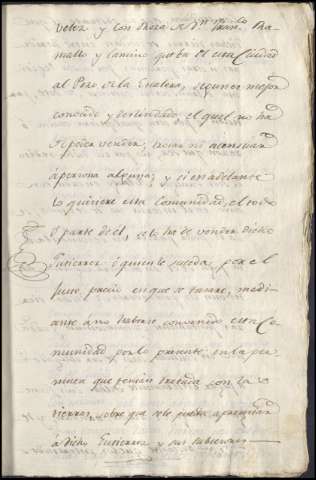 y con Tierra de Dn. Franco. Ra
malto y camino que ba de esta Ciudad
al Pozo de la segun es mejor
conocido y deslindado el qual no ha
de poder vender, trocar ni acensuar
á persona alguna; y si en adelante
lo quisiere esta Comunidad, el todo
ó parte de él, se lo ha de vender dicho
Gutierrez ó quien le suceda por el
justo precio en que se tasare, medi
ante á no haberse convenido esta Co
munidad por lo presente, en la per
muta que tenian tratada con la
tierras, sobre que se le pueda apremiar
á dicho Gutierrez y sus subcesores